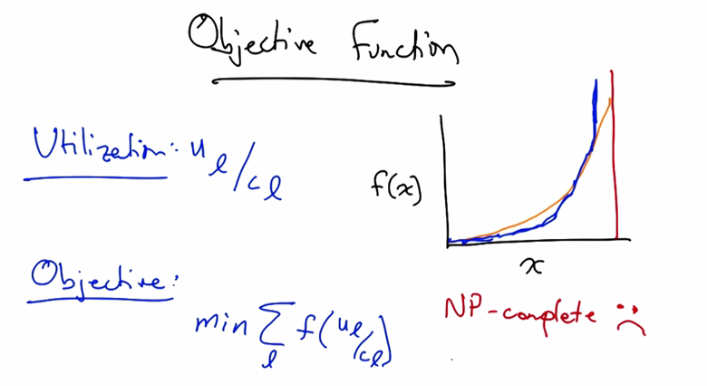 Objective Function
Utilization: u_l/c_l
f(x)
x
Objective:
min Σ_l f(u_l/c_l)
NP-complete :(